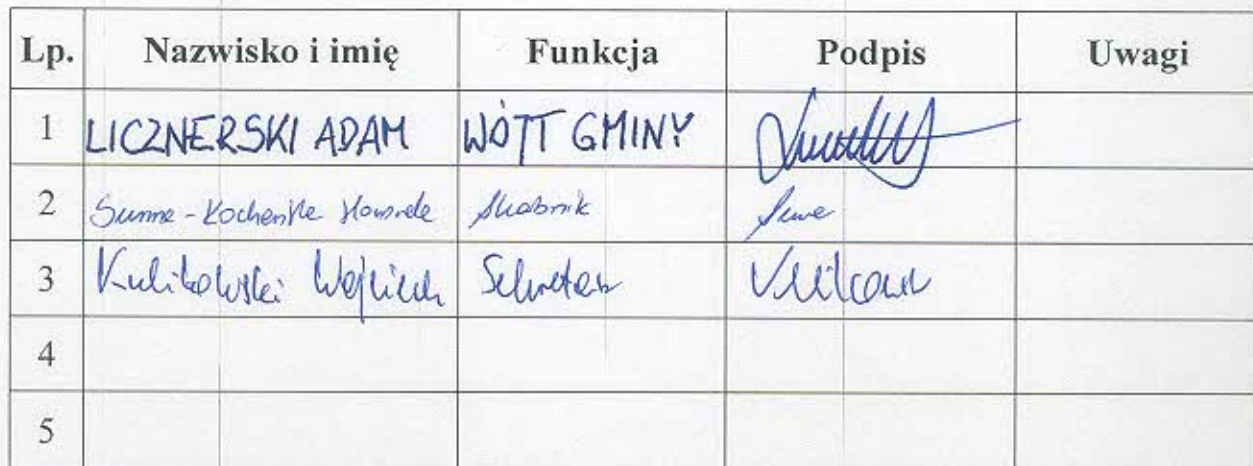 Lp. Nazwisko i imię Funkcja Podpis Uwagi
1 LICZNERSKI ADAM WÓJT GMINY
2 Skarbnik
3 Kulikowski Wojciech Sekretarz
4
5